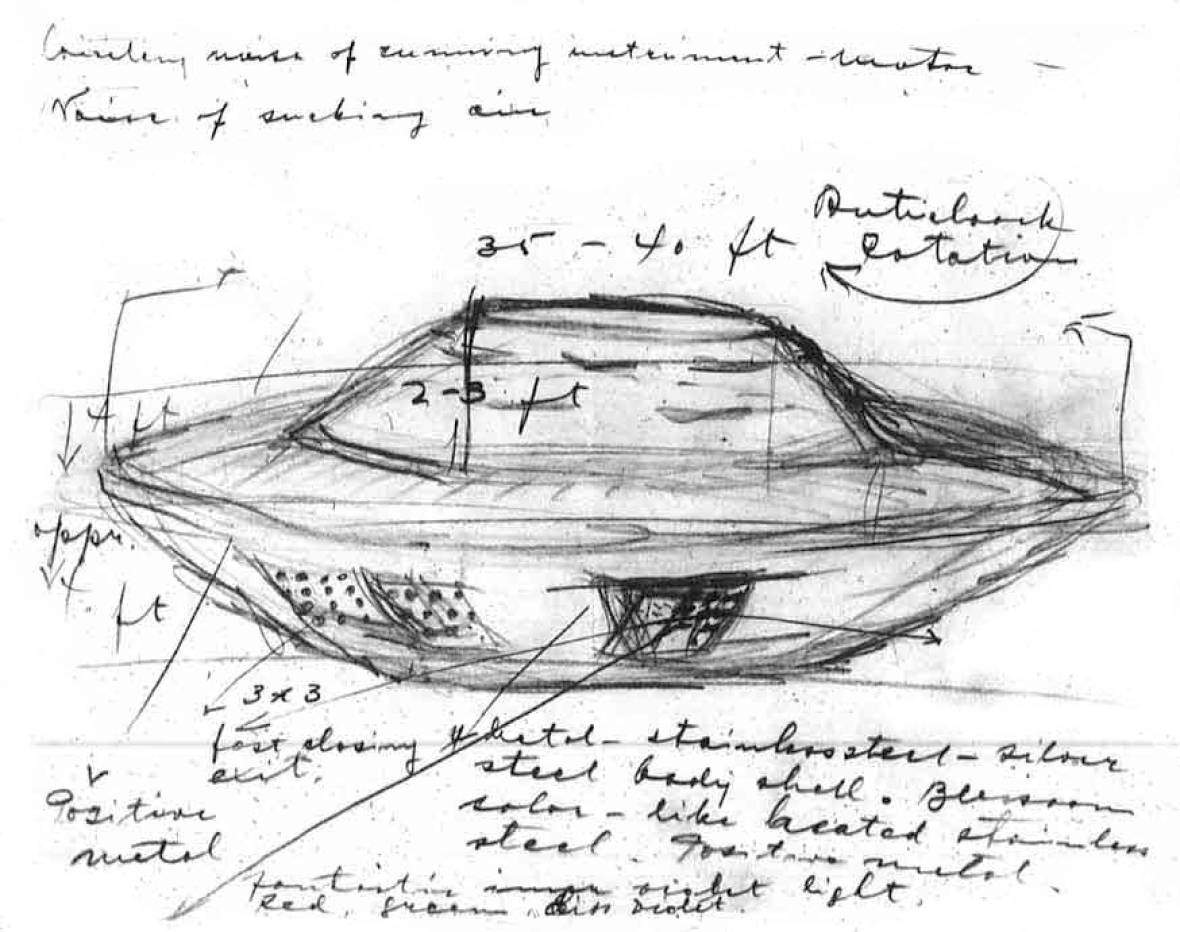 noise of running instrument - motor -
Noise of sucking air
Anticlock
Rotation
35 - 40 ft
2-3 ft
4 ft
appr.
4 ft
3 x 3
fast closing
exit.
Positive
metal
Metal - stainlessteel - silver
steel body shell.
color - like heated stainless
steel. Positive metal.
fantastic inner violet light.
Red, green, violet.